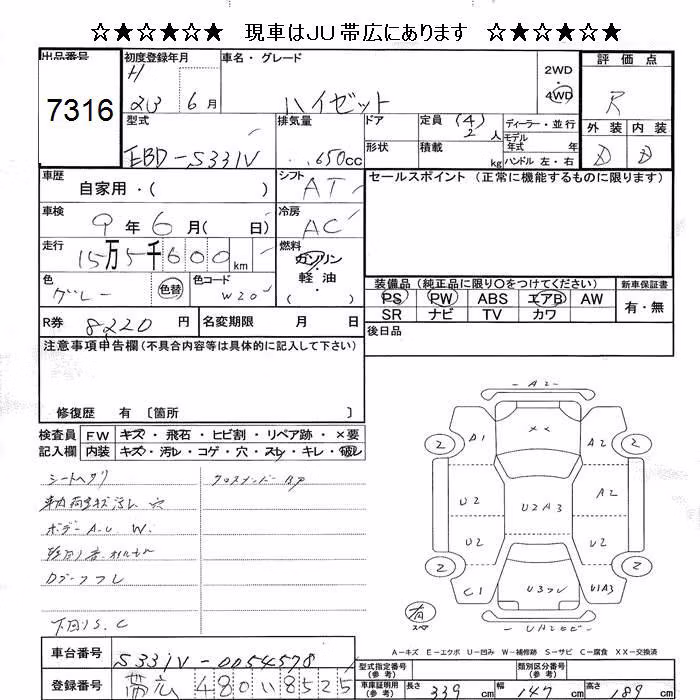 ☆★☆★☆ 現車はＪＵ帯広にあります ☆★☆★☆
出品番号 初度登録年月 車名・グレード 評価点
7316 H 20 6月 ハイゼット 2WD 4WD R
型式 排気量 ドア 定員 (4) 2人 ディーラー・並行 外装 内装
EBD-S331V 650cc 形状 積載 kg モデル年式 年 D D
ハンドル 左・右
車歴 シフト セールスポイント (正常に機能するものに限ります)
自家用・( ) AT
車検 冷房
9年6月( 日) AC
走行 燃料
15万5千600km ガソリン・軽油・( )
色 色替 色コード 装備品 (純正品に限り〇をつけてください) 新車保証書
グレー W20 PS PW ABS エアB AW 有・無
SR ナビ TV カワ
R券 8220円 名変期限 月 日 後日品
注意事項申告欄(不具合内容等は具体的に記入して下さい)
修復歴 有 〔箇所 〕
検査員 FW キズ・飛石・ヒビ割・リペア跡・×要
記入欄 内装 キズ・汚レ・コゲ・穴・スレ・キレ・破レ
シートヘタリ クロスメンバーBP
ボデーA.U W.
下回りS.C
A2
A1 ×× A2
2 2
U2 U2A3 A2
U2 U2
2 2
C1 U3フレ U1A3
有 スペ
A－キズ E－エクボ U－凹み W－補修跡 S－サビ C－腐食 ××－交換済
車台番号 S331V-0054578
型式指定番号(参考) 類別区分番号(参考)
登録番号 帯広 480 い 8525
車庫証明用(参考) 長さ 339cm 幅 147cm 高さ 189cm